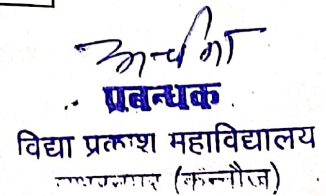 अर्चना
प्रबन्धक
विद्या प्रकाश महाविद्यालय
(कन्नौज)